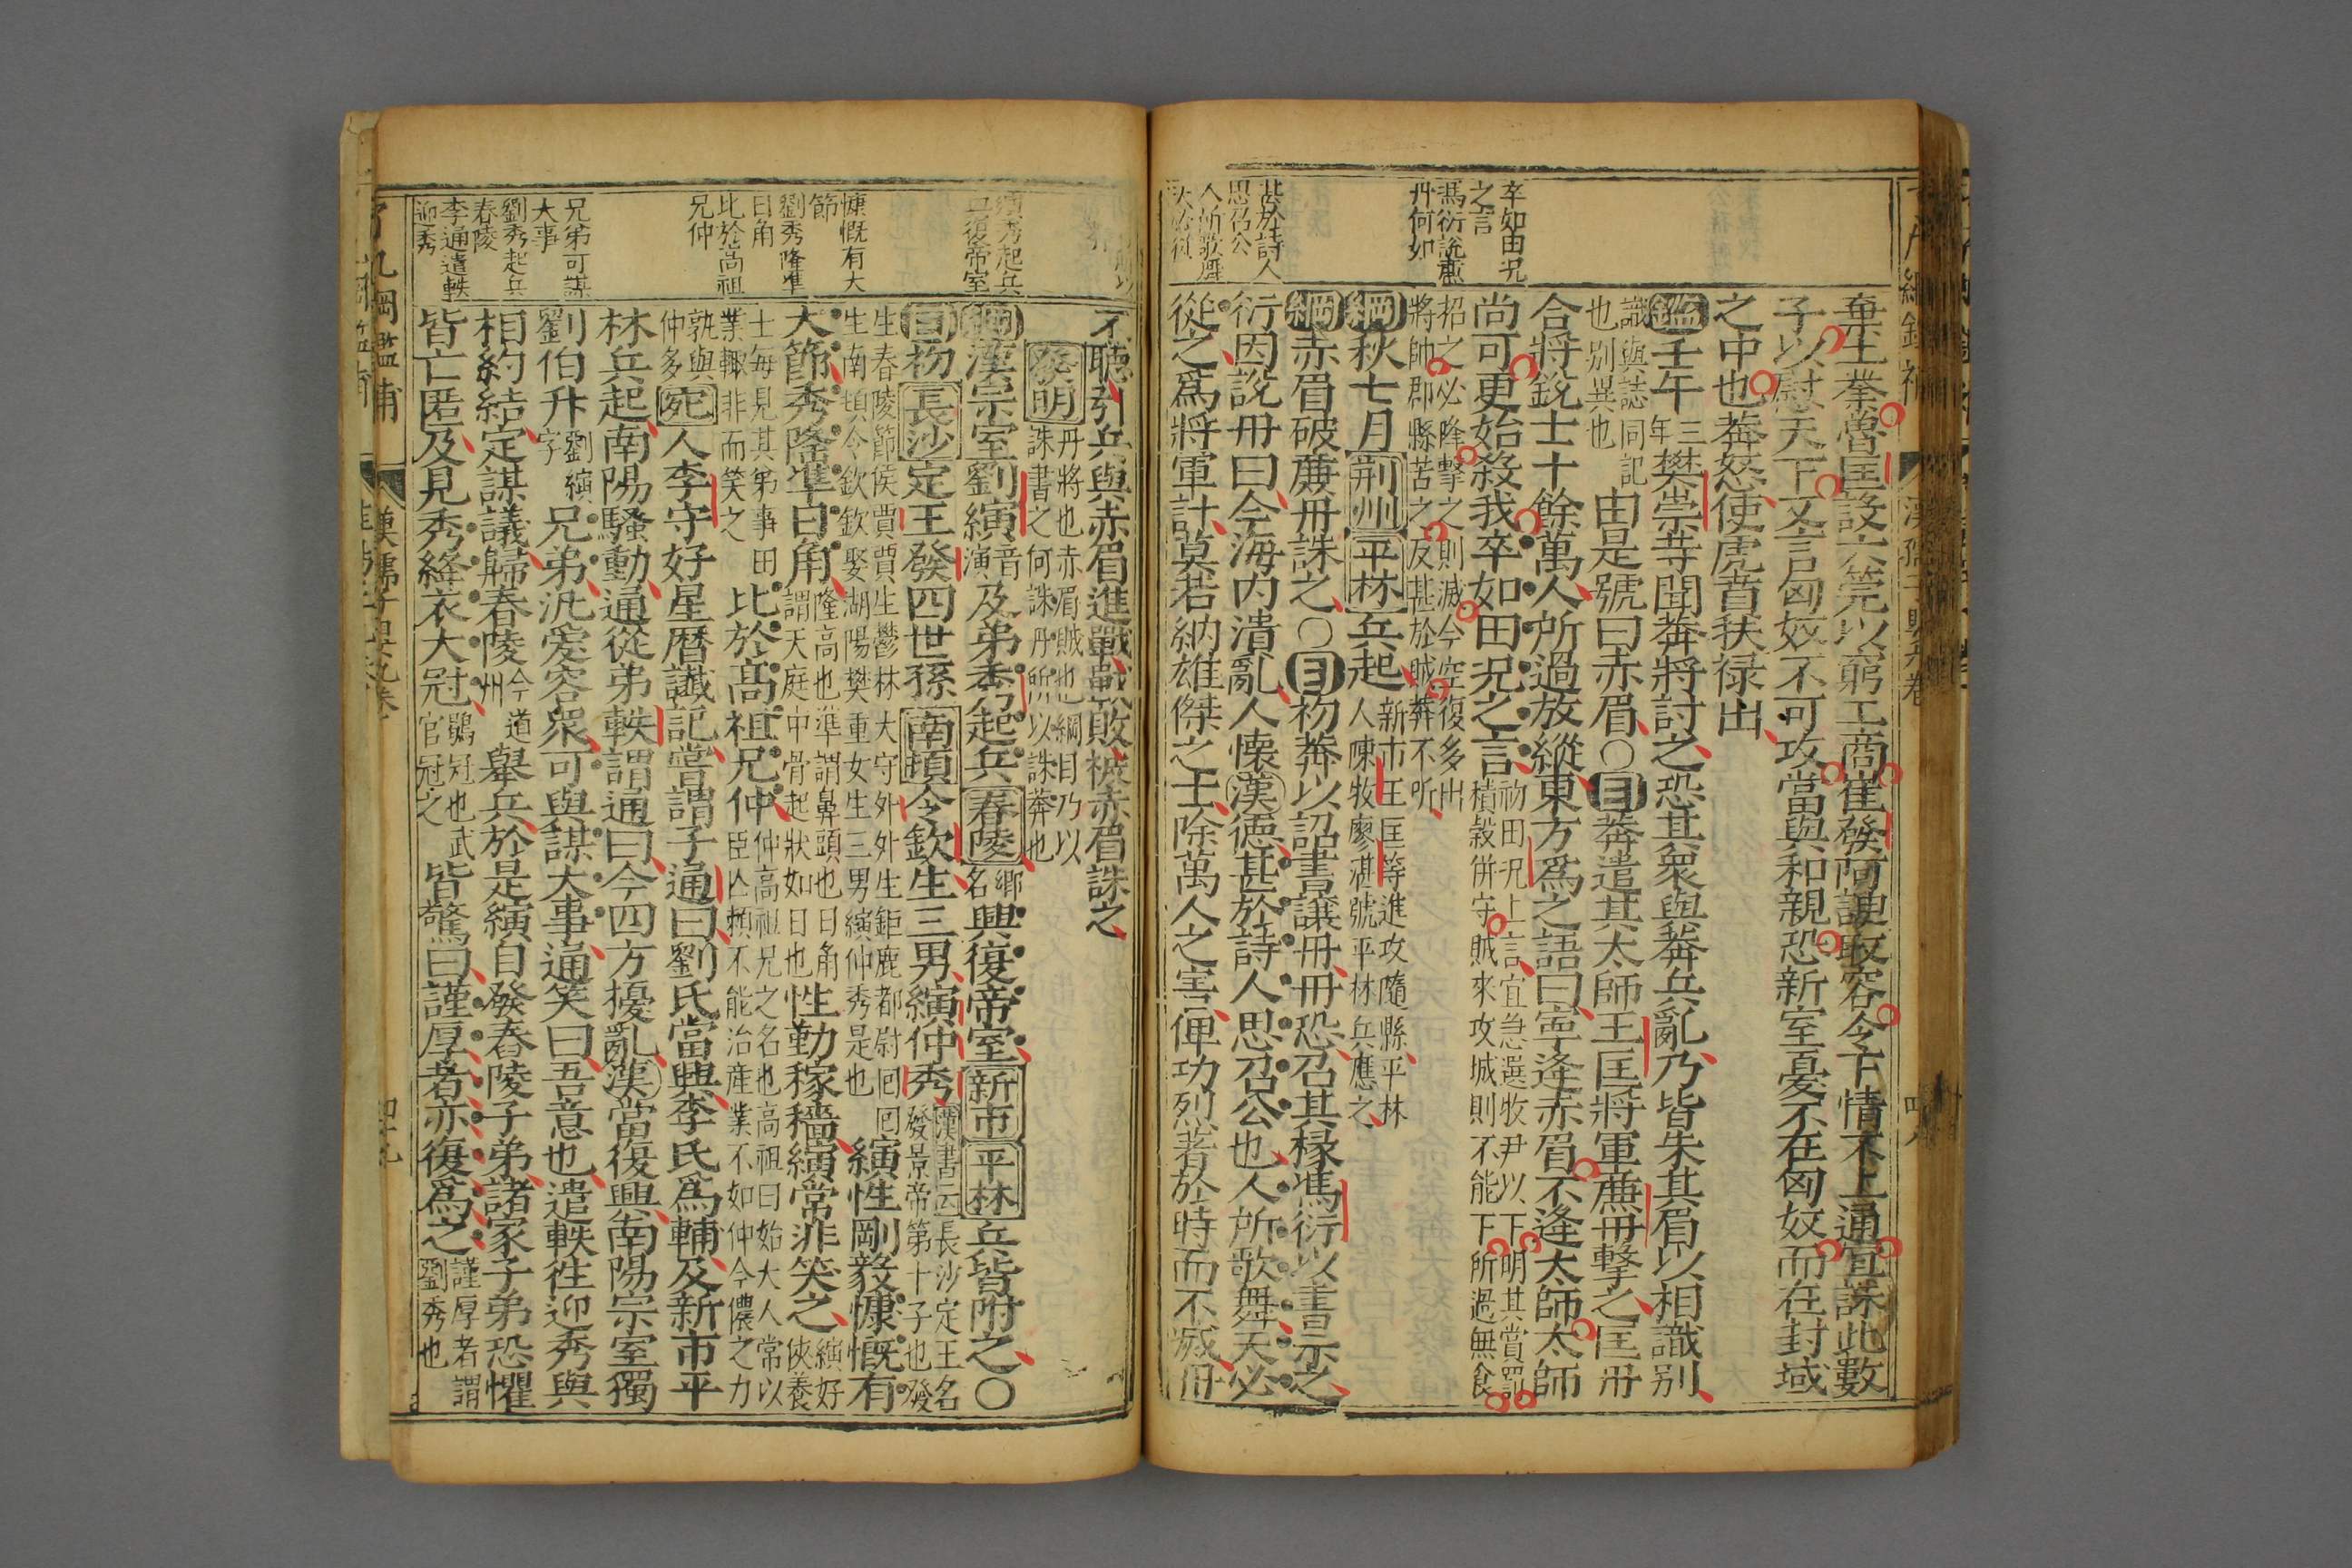 卒如田况
之言
馮衍說廉
丹何如
甚於詩人
思召公
人所歌舞
棄土業魯匡設六筦以窮工商崔發阿諛取容令下情不上通宜誅此數
子以慰天下又言匈奴不可攻當與和親恐新室憂不在匈奴而在封域
之中也莽怒使虎賁扶祿出
鑑壬午三年樊崇等聞莽將討之恐其衆與莽兵亂乃皆朱其眉以相識别
識與誌同記也别異也由是號曰赤眉○目莽遣其太師王匡將軍廉丹擊之匡丹
合將銳士十餘萬人所過放縱東方爲之語曰寧逢赤眉不逢太師太師
尚可更始殺我卒如田况之言初田况上言宜急選牧尹以下明其賞罰積穀併守賊來攻城則不能下所過無食
招之必降擊之則滅今空復多出將帥郡縣苦之反甚於賊莽不听
綱秋七月荆州平林兵起新市王匡等進攻隨縣平林人陳牧廖湛號平林兵應之
綱赤眉破廉丹誅之○目初莽以詔書讓丹丹恐召其掾馮衍以書示之
衍因說丹曰今海内潰亂人懷漢德甚於詩人思召公也人所歌舞天必
從之爲將軍計莫若納雄傑之士除萬人之害便功烈著於時而不滅丹
劉秀起兵
興復帝室
慷慨有大
節
劉秀隆準
日角
比於高祖
兄仲
兄弟可謀
大事
劉秀起兵
舂陵
李通遣軼
迎秀
不聽引兵與赤眉進戰敗被赤眉誅之
發明丹將也赤眉賊也綱目乃以誅書之何誅丹所以誅莽也
綱漢宗室劉縯音演及弟秀起兵舂陵鄉名興復帝室新市平林兵皆附之○
目初長沙定王發四世孫南頓令欽生三男縯仲秀漢書云長沙定王名發景帝第十子也發
生舂陵節侯買買生鬱林大守外外生鉅鹿都尉囘囘生南頓令欽欽娶湖陽樊重女生三男縯仲秀是也縯性剛毅慷慨有
大節秀隆準日角隆高也準謂鼻頭也日角謂天庭中骨起狀如日也性勤稼穡縯常非笑之縯好俠養
士每見其弟事田業輒非而笑之比於高祖兄仲仲高祖兄之名也高祖曰始大人常以臣亾賴不能治産業不如仲今儂之力
孰與仲多宛人李守好星曆讖記嘗謂子通曰劉氏當興李氏爲輔及新市平
林兵起南陽騷動通從弟軼謂通曰今四方擾亂漢當復興南陽宗室獨
劉伯升劉縯字兄弟汎愛容衆可與謀大事通笑曰吾意也遣軼往迎秀與
相約結定謀議歸舂陵今道州舉兵於是縯自發舂陵子弟諸家子弟恐懼
皆亡匿及見秀絳衣大冠鶡冠也武官冠之皆驚曰謹厚者亦復爲之謹厚者謂劉秀也